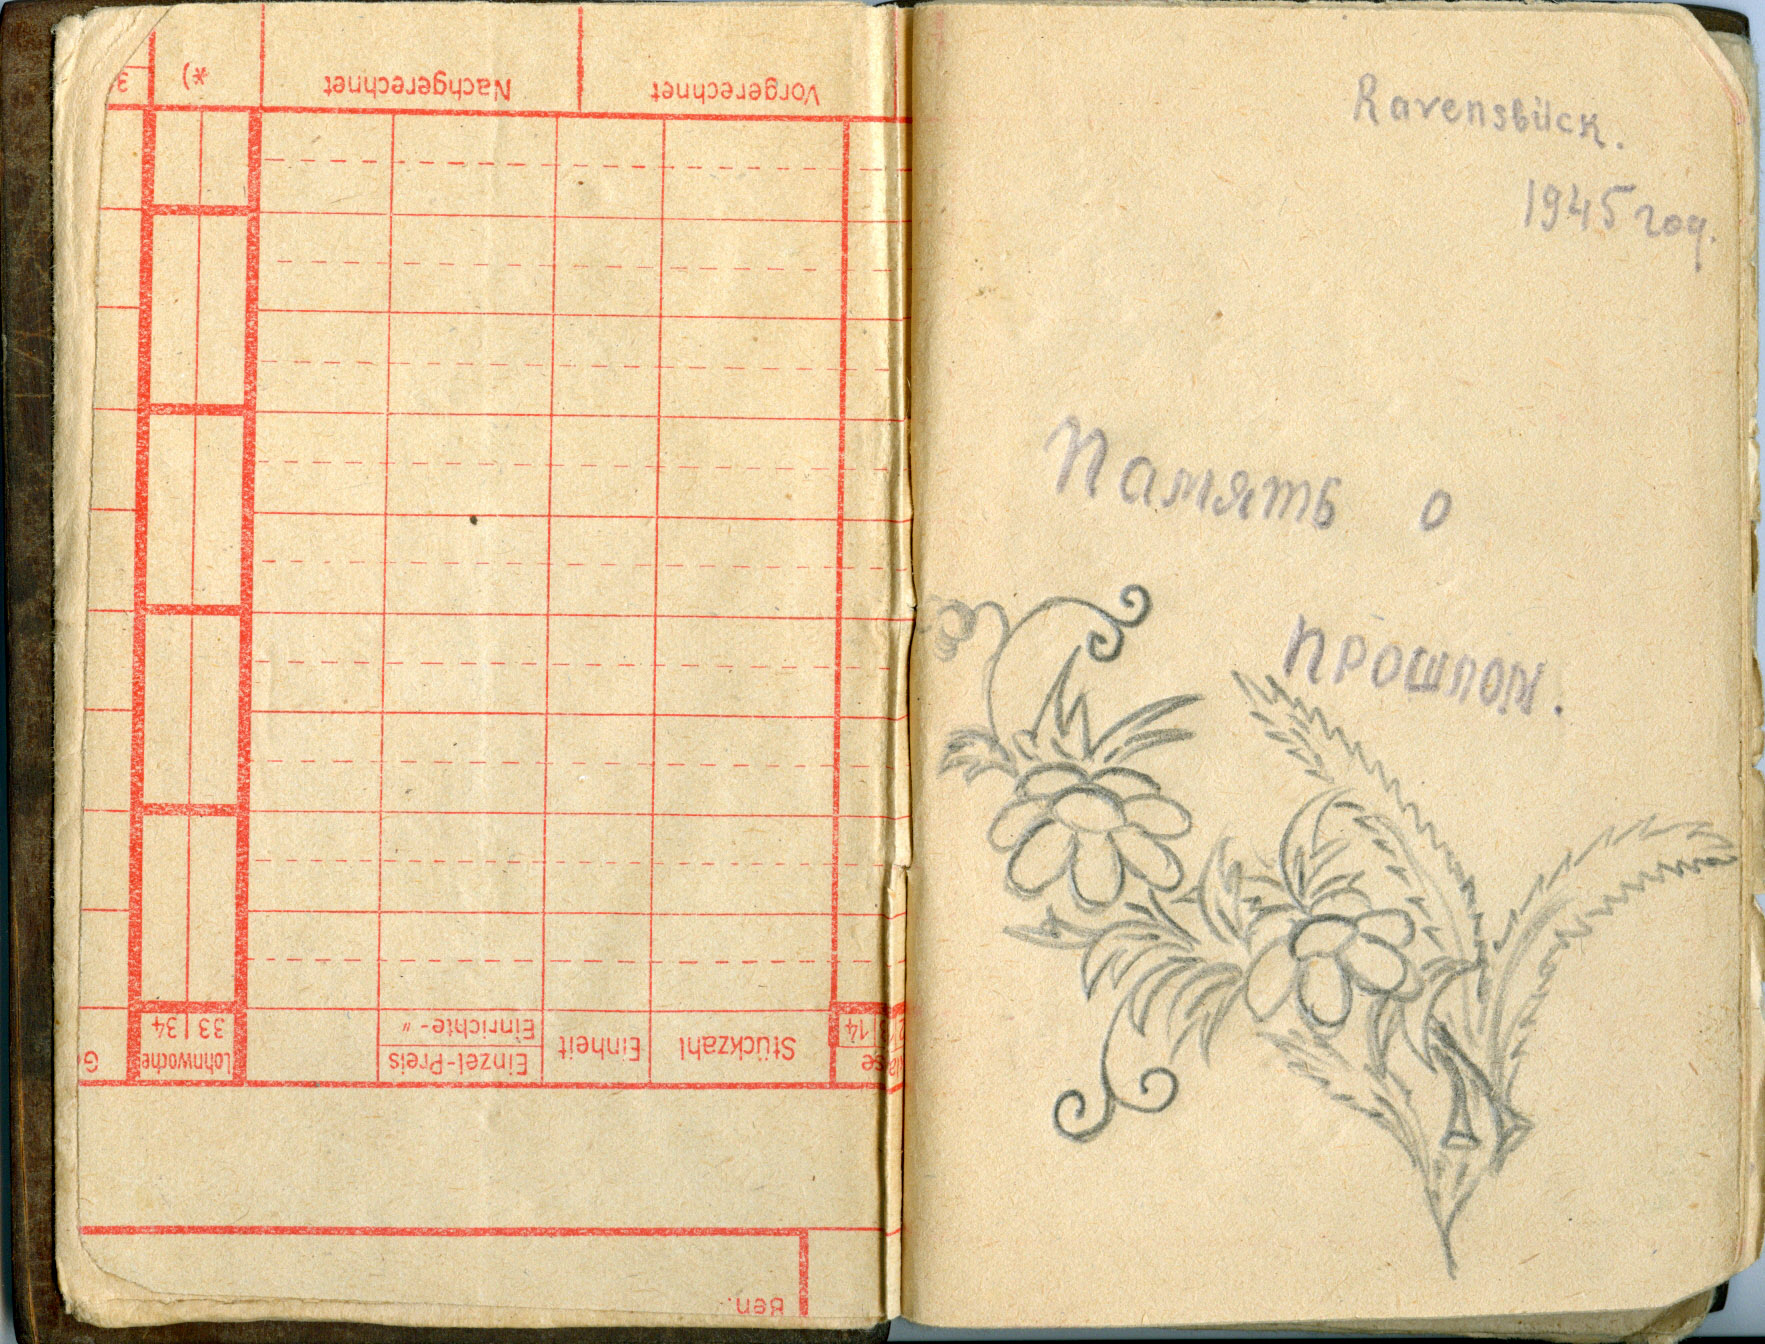 *)
Nachgerechnet
Vorgerechnet
Lohnwoche
33 | 34
Einzel-Preis
Einrichte- "
Einheit
Stückzahl
14
Ben.
Ravensbück.
1945 год.
Память о
прошлом.